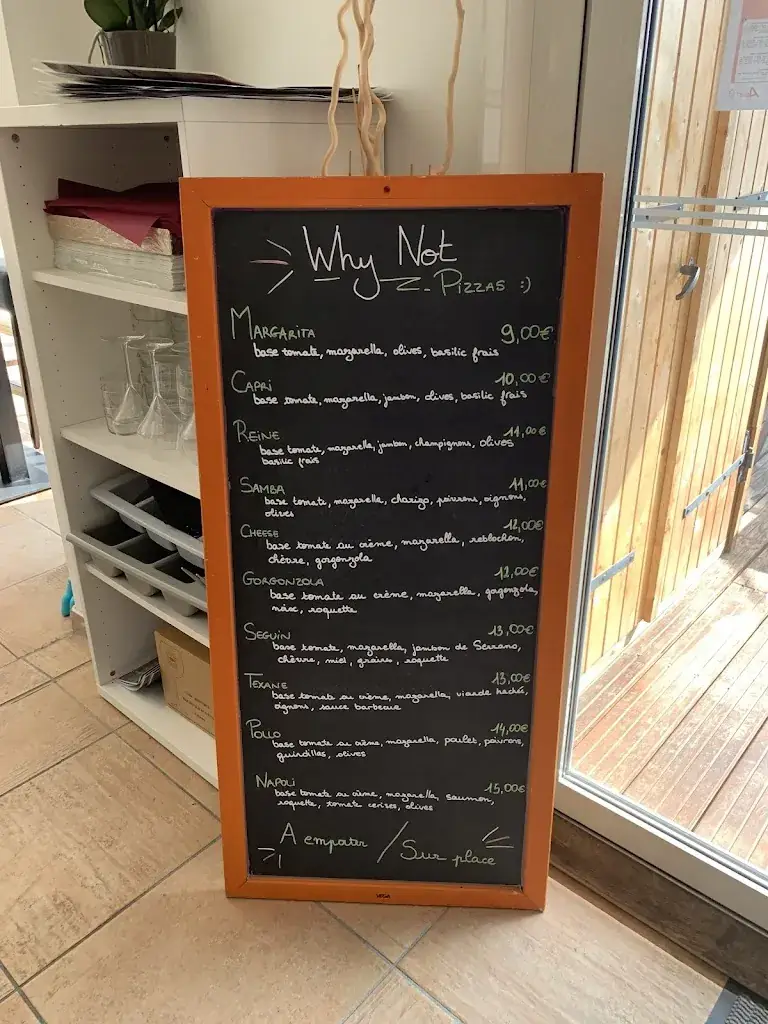 Why Not
Pizzas :)
MARGARITA 9,00€
base tomate, mazarella, olives, basilic frais
CAPRI 10,00€
base tomate, mazarella, jambon, olives, basilic frais
REINE 11,00€
base tomate, mazarella, jambon, champignons, olives
basilic frais
SAMBA 11,00€
base tomate, mazarella, chorizo, poivrons, oignons,
olives
CHEESE 12,00€
base tomate ou crème, mazarella, reblochon,
chèvre, gorgonzola
GORGONZOLA 12,00€
base tomate ou crème, mazarella, gorgonzola,
noix, roquette
SEGUIN 13,00€
base tomate, mazarella, jambon de Serrano,
chèvre, miel, graines, roquette
TEXANE 13,00€
base tomate ou crème, mazarella, viande haché,
oignons, sauce barbecue
POLLO 14,00€
base tomate ou crème, mazarella, poulet, poivrons,
guindillas, olives
NAPOLI 15,00€
base tomate ou crème, mazarella, saumon,
roquette, tomate cerises, olives
A emporter / Sur place